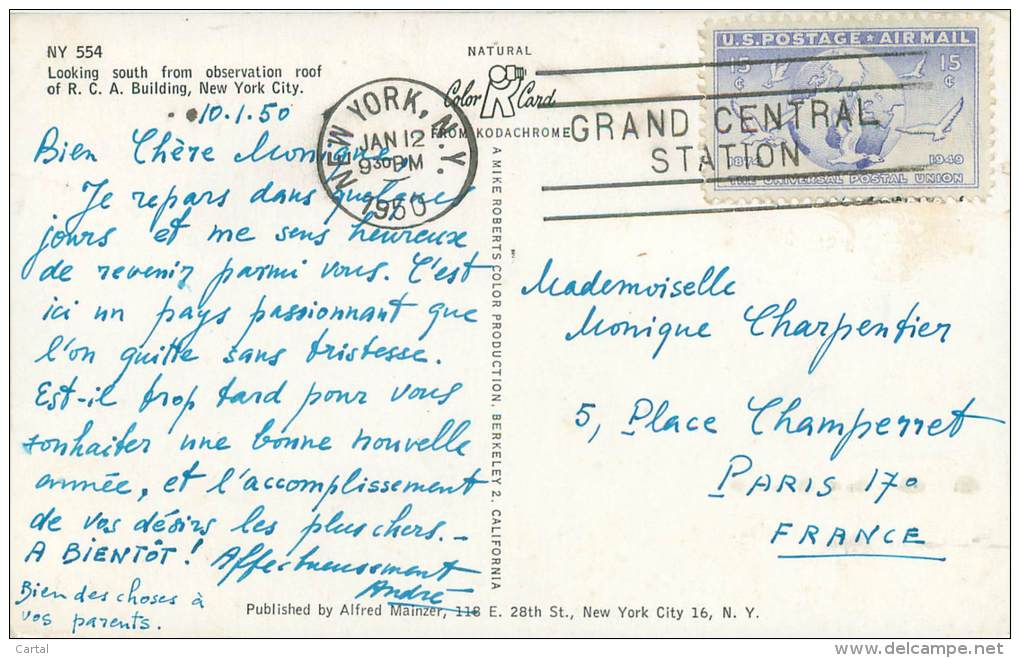 NY 554
Looking south from observation roof
of R. C. A. Building, New York City.
10.1.50
Bien Chère Monique,
Je repars dans quelques
jours et me sens heureux
de revenir parmi vous. C'est
ici un pays passionnant que
l'on quitte sans tristesse.
Est-il trop tard pour vous
souhaiter une bonne nouvelle
année, et l'accomplissement
de vos désirs les plus chers._
A BIENTÔT! Affectueusement
André
Bien des choses à
vos parents.
NATURAL
Color Card
FROM KODACHROME
NEW YORK, N.Y.
JAN 12
9 30 PM
1950
GRAND CENTRAL
STATION
U.S. POSTAGE ★ AIR MAIL
15 ¢ 15 ¢
1874 1949
THE UNIVERSAL POSTAL UNION
A MIKE ROBERTS COLOR PRODUCTION, BERKELEY 2, CALIFORNIA
Mademoiselle
Monique Charpentier
5, Place Champerret
PARIS 17º
FRANCE
Published by Alfred Mainzer, 118 E. 28th St., New York City 16, N. Y.
Cartal
www.delcampe.net